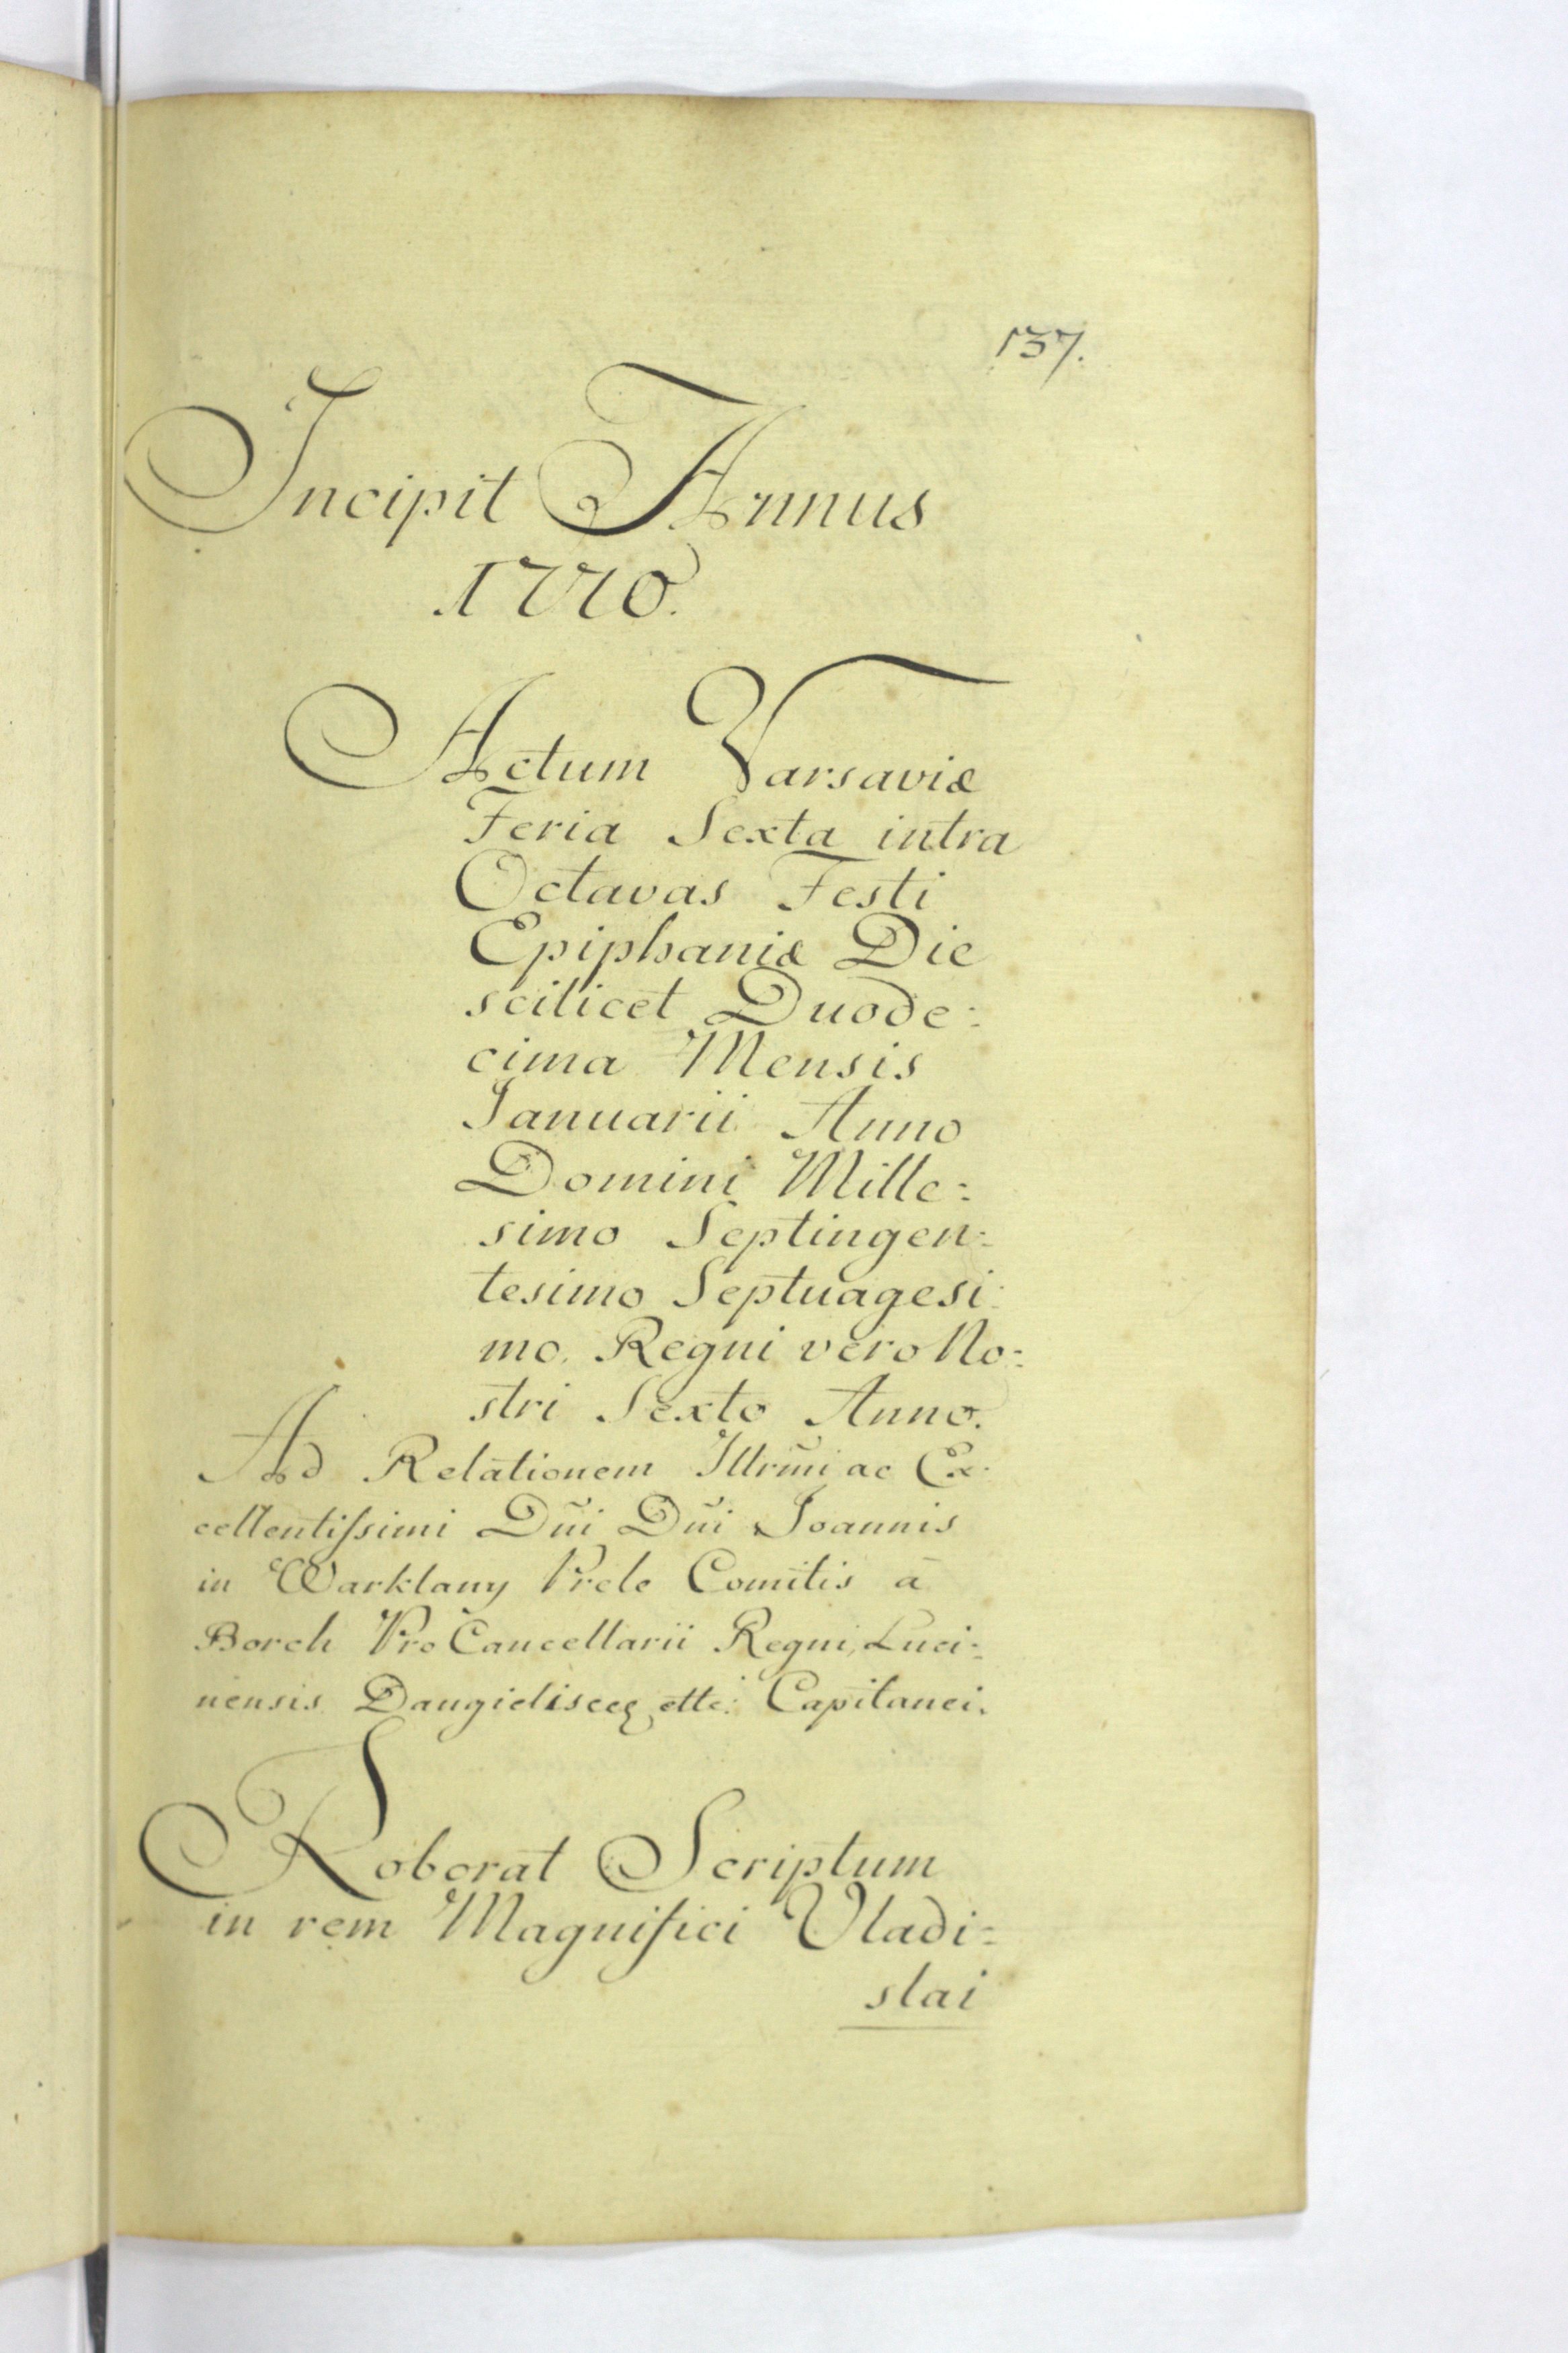 137.
Incipit Annus
1770.
Actum Varsaviæ
Feria Sexta intra
Octavas Festi
Epiphaniæ Die
scilicet Duode:
cima Mensis
Januarii Anno
Domini Mille:
simo Septingen:
tesimo Septuagesi:
mo. Regni vero No:
stri Sexto Anno.
Ad Relationem Illrmi ac Ex:
cellentissimi Dni Dni Joannis
in Warklany Prele Comitis a
Borch ProCancellarii Regni, Luci:
nensis ettc: Capitanei.
Roborat Scriptum
in rem Magnifici Vladi=
slai